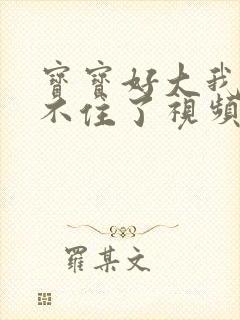 寶寶好大我
不住了視頻
羅某文